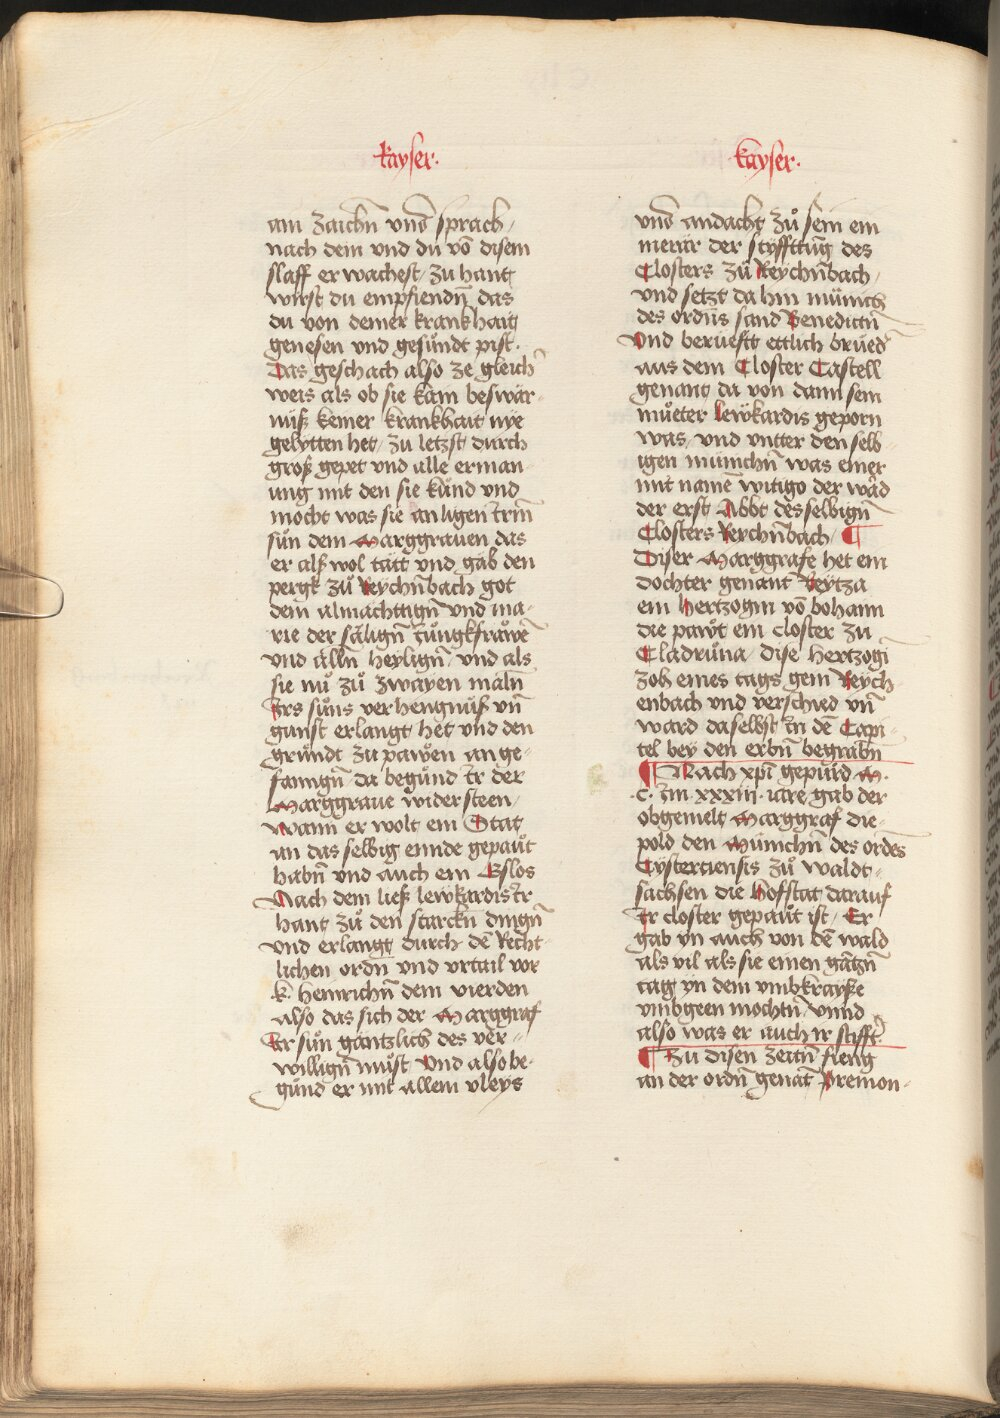 kayser.
am zaichn̄ vnd sprach /
nach dem vnd du võ disem
slaff er wachest / zu hant
wirst du empfiendn̄ das
du von deiner krankhait
genesen vnd gesůndt pist.
Das geschach also ze gleich
weis als ob sie kain beswär-
nüß keiner krankhait nye
gelytten het / zu letzst durch
groß gepet vnd alle erman-
ung mit den sie kund vnd
mocht was sie an ligen Irm̄
sůn dem Marggrauen das
er alß wol tätt vnd gäb den
pergk zů Reychn̄bach got
dem almächtign̄ vnd ma-
rie der sälign̄ Jůngkfrawẽ
vnd alln̄ heylign̄ / vnd als
sie nů zů zwayen maln̄
Irs sůns verhengnůß vn̄
gunst erlangt het vnd den
grůndt zu pawen ange-
fanngn̄ da begůnd Ir der
Marggraue widersteen /
wann er wolt ein Stat
an das selbig ennde gepaůt
habn̄ vnd auch ein Gslos
Nach dem ließ lewkardis Ir
hant zů den starckn̄ dingn̄
vnd erlangt durch dẽ Recht-
lichen ordn̄ vnd vrtail vor
k. heinrichn̄ dem vierden
also das sich der Marggraf
Ir sůn gäntzlich des ver-
willign̄ můst Vnd also be-
gůnd er mit allem vleys
kayser.
vnd andacht zů sein ein
merär der styffttung des
Closters zů Reychn̄bach /
vnd setzt da hin münich
des ordn̄s sand Benedictn̄
Vnd berüefft ettlich brüed
aus dem Closter Castell
genant da von dann sein
můeter lewkardis geporn
was / vnd vntter den selb-
igen münichn̄ was einer
mit namẽ witigo der ward
der erst Abbt des selbign̄
Closters Reychn̄bach /
Diser Marggrafe het ein
dochter genant Reytza
ein hertzogin võ bohaim
die pawt ein closter zu
Cladrůna / dise hertzogĩ
zoh eines tags gein Reych-
enbach vnd verschied vn̄
ward daselbst In dẽ Capi-
tel bey den erbn̄ begrabn̄
Nach xpi gepurd M.
.c. Im xxxiii. iare gab der
obgemelt Marggraf die-
pold den Münichn̄ des ordẽs
Cystertiensis zů waldt-
sachsen die hofstat darauf
Ir closter gepaůt ist / Er
gab yn auch von dẽ wald
als vil als sie einen gãtzn̄
tag yn dem vmbkrayße
vmbgeen mochtn̄ / vnnd
also was er auch ir stifft
Zu disen zeitn̄ fieng
an der ordn̄ genãt Premon-